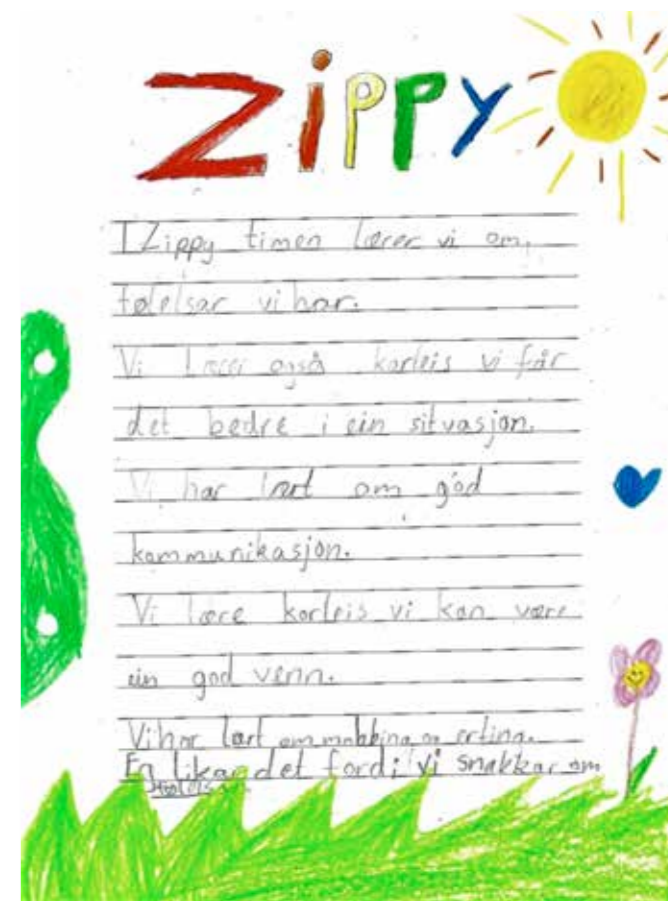 ZiPPY
I Zippy timen lærer vi om,
følelsar vi har.
Vi også korleis vi får
det bedre i ein sitvasjon.
Vi har lært om god
kommunikasjon.
Vi lære korleis vi kan være
ein god venn.
Vi har lært om mobbing og erting.
likar det fordi vi snakkar om
følelsar.